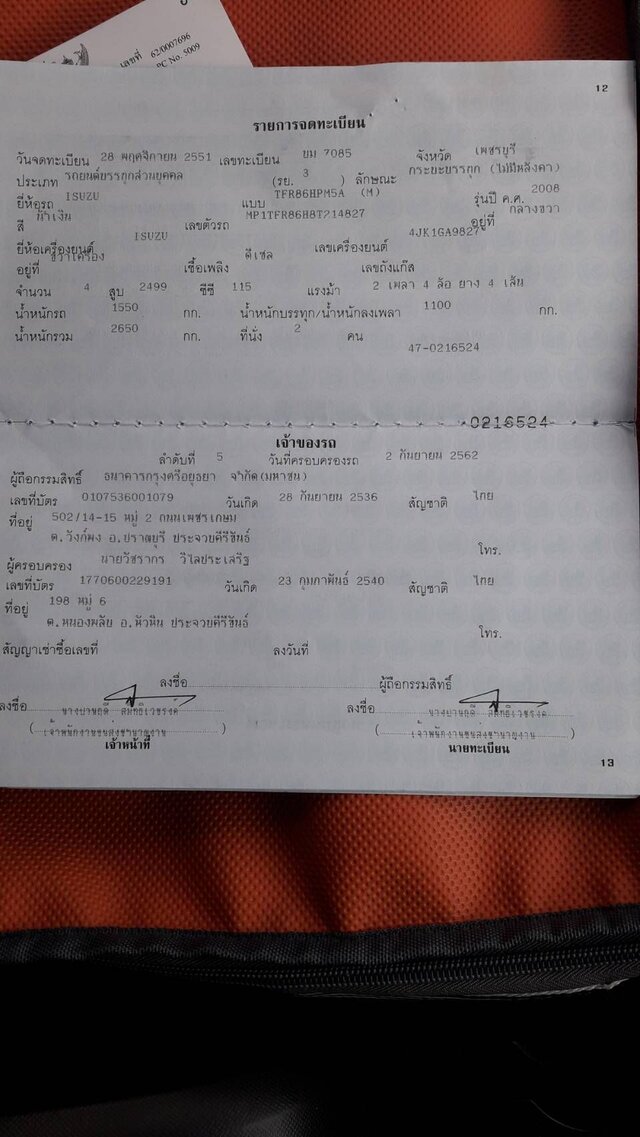 เลขที่ 62/0007696
PC No. 5009
12
รายการจดทะเบียน
วันจดทะเบียน 28 พฤศจิกายน 2551 เลขทะเบียน ยม 7085 จังหวัด เพชรบุรี
ประเภท รถยนต์บรรทุกส่วนบุคคล (รย. 3 ) ลักษณะ กระบะบรรทุก (ไม่มีหลังคา)
ยี่ห้อรถ ISUZU แบบ TFR86HPM5A (M) รุ่นปี ค.ศ. 2008
สี น้ำเงิน เลขตัวรถ MP1TFR86H8T214827 อยู่ที่ กลางขวา
ยี่ห้อเครื่องยนต์ ISUZU เลขเครื่องยนต์ 4JK1GA9827
อยู่ที่ ขวาเครื่อง เชื้อเพลิง ดีเซล เลขถังแก๊ส
จำนวน 4 สูบ 2499 ซีซี 115 แรงม้า 2 เพลา 4 ล้อ ยาง 4 เส้น
น้ำหนักรถ 1550 กก. น้ำหนักบรรทุก/น้ำหนักลงเพลา 1100 กก.
น้ำหนักรวม 2650 กก. ที่นั่ง 2 คน
47-0216524
0216524
เจ้าของรถ
ลำดับที่ 5 วันที่ครอบครองรถ 2 กันยายน 2562
ผู้ถือกรรมสิทธิ์ ธนาคารกรุงศรีอยุธยา จำกัด(มหาชน)
เลขที่บัตร 0107536001079 วันเกิด 28 กันยายน 2536 สัญชาติ ไทย
ที่อยู่ 502/14-15 หมู่ 2 ถนนเพชรเกษม
ต.วังก์พง อ.ปราณบุรี ประจวบคีรีขันธ์
โทร.
ผู้ครอบครอง นายวัชรากร วิไลประเสริฐ
เลขที่บัตร 1770600229191 วันเกิด 23 กุมภาพันธ์ 2540 สัญชาติ ไทย
ที่อยู่ 198 หมู่ 6
ต.หนองพลับ อ.หัวหิน ประจวบคีรีขันธ์
โทร.
สัญญาเช่าซื้อเลขที่ ลงวันที่
ลงชื่อ ผู้ถือกรรมสิทธิ์
ลงชื่อ ลงชื่อ
(เจ้าพนักงานขนส่งชำนาญงาน) (เจ้าพนักงานขนส่งชำนาญงาน)
เจ้าหน้าที่ นายทะเบียน
13